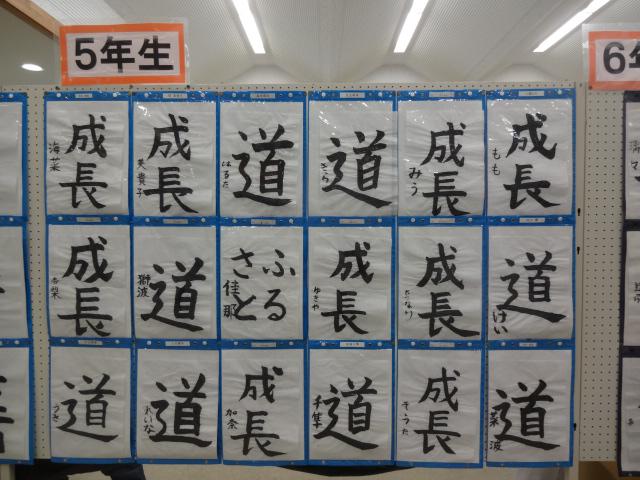 5年生
6年
成長
海菜
成長
道
はるた
道
きら
成長
みう
成長
もも
成長
道
ふるさと
佳那
成長
ゆきや
成長
道
けい
道
道
れいな
成長
加奈
道
成長
そうた
道